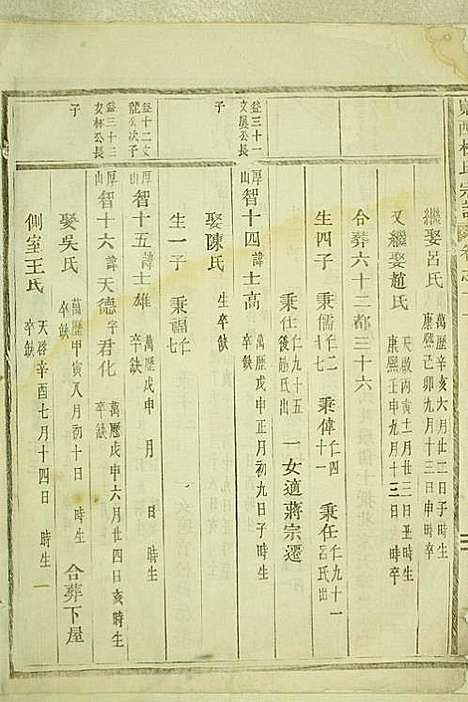 繼娶呂氏 萬曆辛亥六月廿二日子時生 康熙己卯九月十三日申時卒
又繼娶趙氏 天啟丙寅十一月廿三日丑時生 康熙壬申九月十三日 時卒
合葬六十二都三十六
生四子 秉儒 仁七 秉偉 仁四十一 秉任 仁九十一 呂氏出
秉仕 仁九十五 後趙氏出 一女適蔣宗遷
益三十一 文奧公長子
山厚 智十四 諱士高 萬曆戊申正月初九日子時生 卒缺
娶陳氏 生卒缺
生一子 秉福
益十二 文龍公次子
山厚 智十五 諱士雄 萬曆戊申 月 日 時生 卒缺
益三十三 文杯公長子
山厚 智十六 諱天德 字君化 萬曆戊申六月廿四日亥時生 卒缺
娶吳氏 萬曆甲寅八月初十日 時生 卒缺 合葬下屋
側室王氏 天啓辛酉七月十四日 時生 卒缺